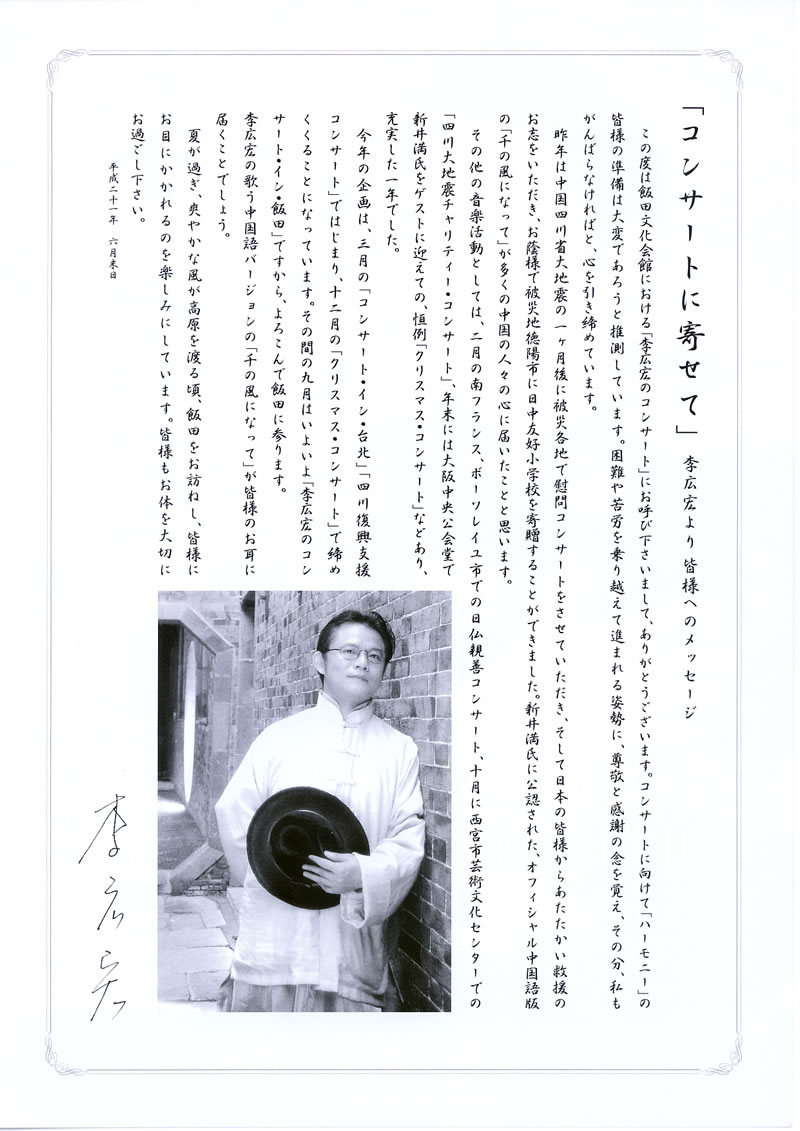 「コンサートに寄せて」 李広宏より皆様へのメッセージ
この度は飯田文化会館における「李広宏のコンサート」にお呼び下さいまして、ありがとうございます。コンサートに向けて「ハーモニー」の
皆様の準備は大変であろうと推測しています。困難や苦労を乗り越えて進まれる姿勢に、尊敬と感謝の念を覚え、その分、私も
がんばらなければと、心を引き締めています。
昨年は中国四川省大地震の一ヶ月後に被災各地で慰問コンサートをさせていただき、そして日本の皆様からあたたかい救援の
お志をいただき、お蔭様で被災地徳陽市に日中友好小学校を寄贈することができました。新井満氏に公認された、オフィシャル中国語版
の「千の風になって」が多くの中国の人々の心に届いたことと思います。
その他の音楽活動としては、二月の南フランス、ボーソレイユ市での日仏親善コンサート、十月に西宮市芸術文化センターでの
「四川大地震チャリティー・コンサート」、年末には大阪中央公会堂で
新井満氏をゲストに迎えての、恒例「クリスマス・コンサート」などあり、
充実した一年でした。
今年の企画は、三月の「コンサート・イン・台北」「四川復興支援
コンサート」ではじまり、十二月の「クリスマス・コンサート」で締め
くくることになっています。その間の九月はいよいよ「李広宏のコン
サート・イン・飯田」ですから、よろこんで飯田に参ります。
李広宏の歌う中国語バージョンの「千の風になって」が皆様のお耳に
届くことでしょう。
夏が過ぎ、爽やかな風が高原を渡る頃、飯田をお訪ねし、皆様に
お目にかかれるのを楽しみにしています。皆様もお体を大切に
お過ごし下さい。
平成二十一年 六月末日
李广宏